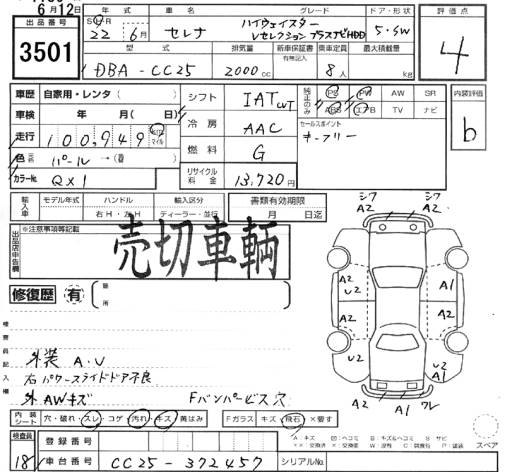 6月12日
年式 車名 グレード ドア・形状 評価点
出品番号 3501
22年 6月 セレナ ハイウェイスター Vセレクション プラスナビHDD 5・SW 4
型式 排気量 新車保証書 有無記入 乗車定員 最大積載量
DBA-CC25 2000cc 8人 kg
車歴 自家用・レンタ( ) シフト IAT CVT 純正のみ PS PW AW SR 内装評価
車検 年 月( 日) ABS エアB TV ナビ b
冷房 AAC セールスポイント
走行 100,949 km マイル キーフリー
色 元色 パール→( 替) 燃料 G
カラーNo. QX1 リサイクル料金 13,720円
輸入車 モデル年式 ハンドル 輸入区分 書類有効期限
右H・左H ディーラー・並行 月 日迄
出品店申告欄 ※注意事項等記載
売切車輌
修復歴 有 箇所
検査員記入欄
外装 A.U
右パワースライドドア不良
外AWキズ Fバンパービス穴
シワ A2 シワ A2
A2 U2 A1
A2 U2 A2
A2 A2 A1 ワレ
内装シート 穴・破れ・スレ・コゲ・汚れ・キズ・黄ばみ Fガラス キズ・飛石・×要す
検査員 18 登録番号
車台番号 CC25-372457 シリアルNo.
スペア